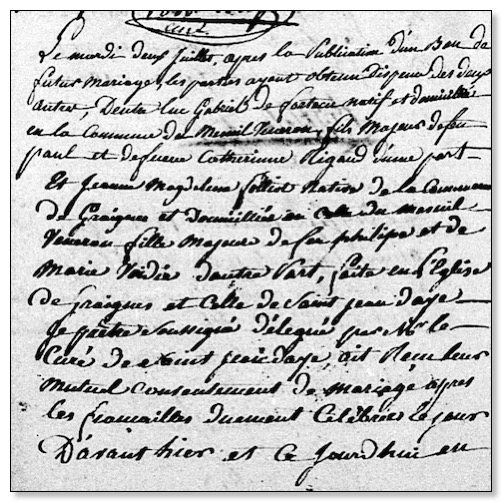 Le mardi deux juillet, apres la Publication d'un Ban de
futur Mariage, les parties ayant obtenu dispense des deux
autres, Entre Luc Gabriel de natif et domicilié
en la Commune du Mesnil Veneron, fils Majeur de feu
paul et de feue Catherinne Rigaud d'une part
Et Jeanne Magdeleine folliot Native de la Commune
de Graignes et domiciliée en Celle du Mesnil
Veneron fille Majeure de feu philipe et de
Marie Voidie d'autre Part, faite en l'Eglise
de Graignes et Celle de Saint jean daye
Je prêtre Soussigné délégué par Mr le
Curé de Saint jean daye ait Reçu leur
Mutuel Consentement de Mariage apres
les fiancailles duement Célébrées le jour
D'avant hier et Ce Jourdhui en